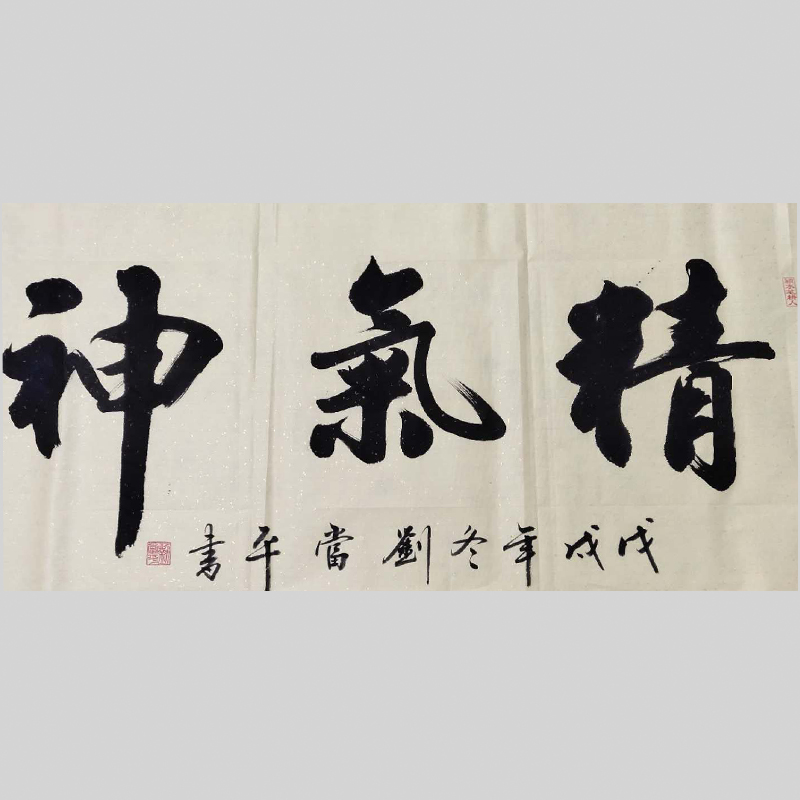 精氣神
戊戌年冬劉當平书